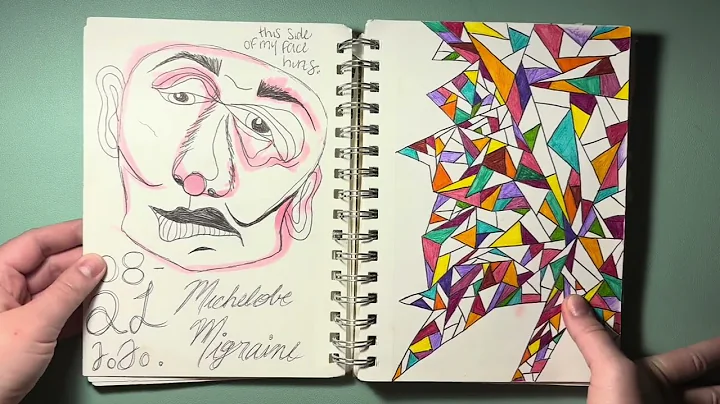 this side
of my face
hurts.
08-
21
2020.
Michelobe
Migraine